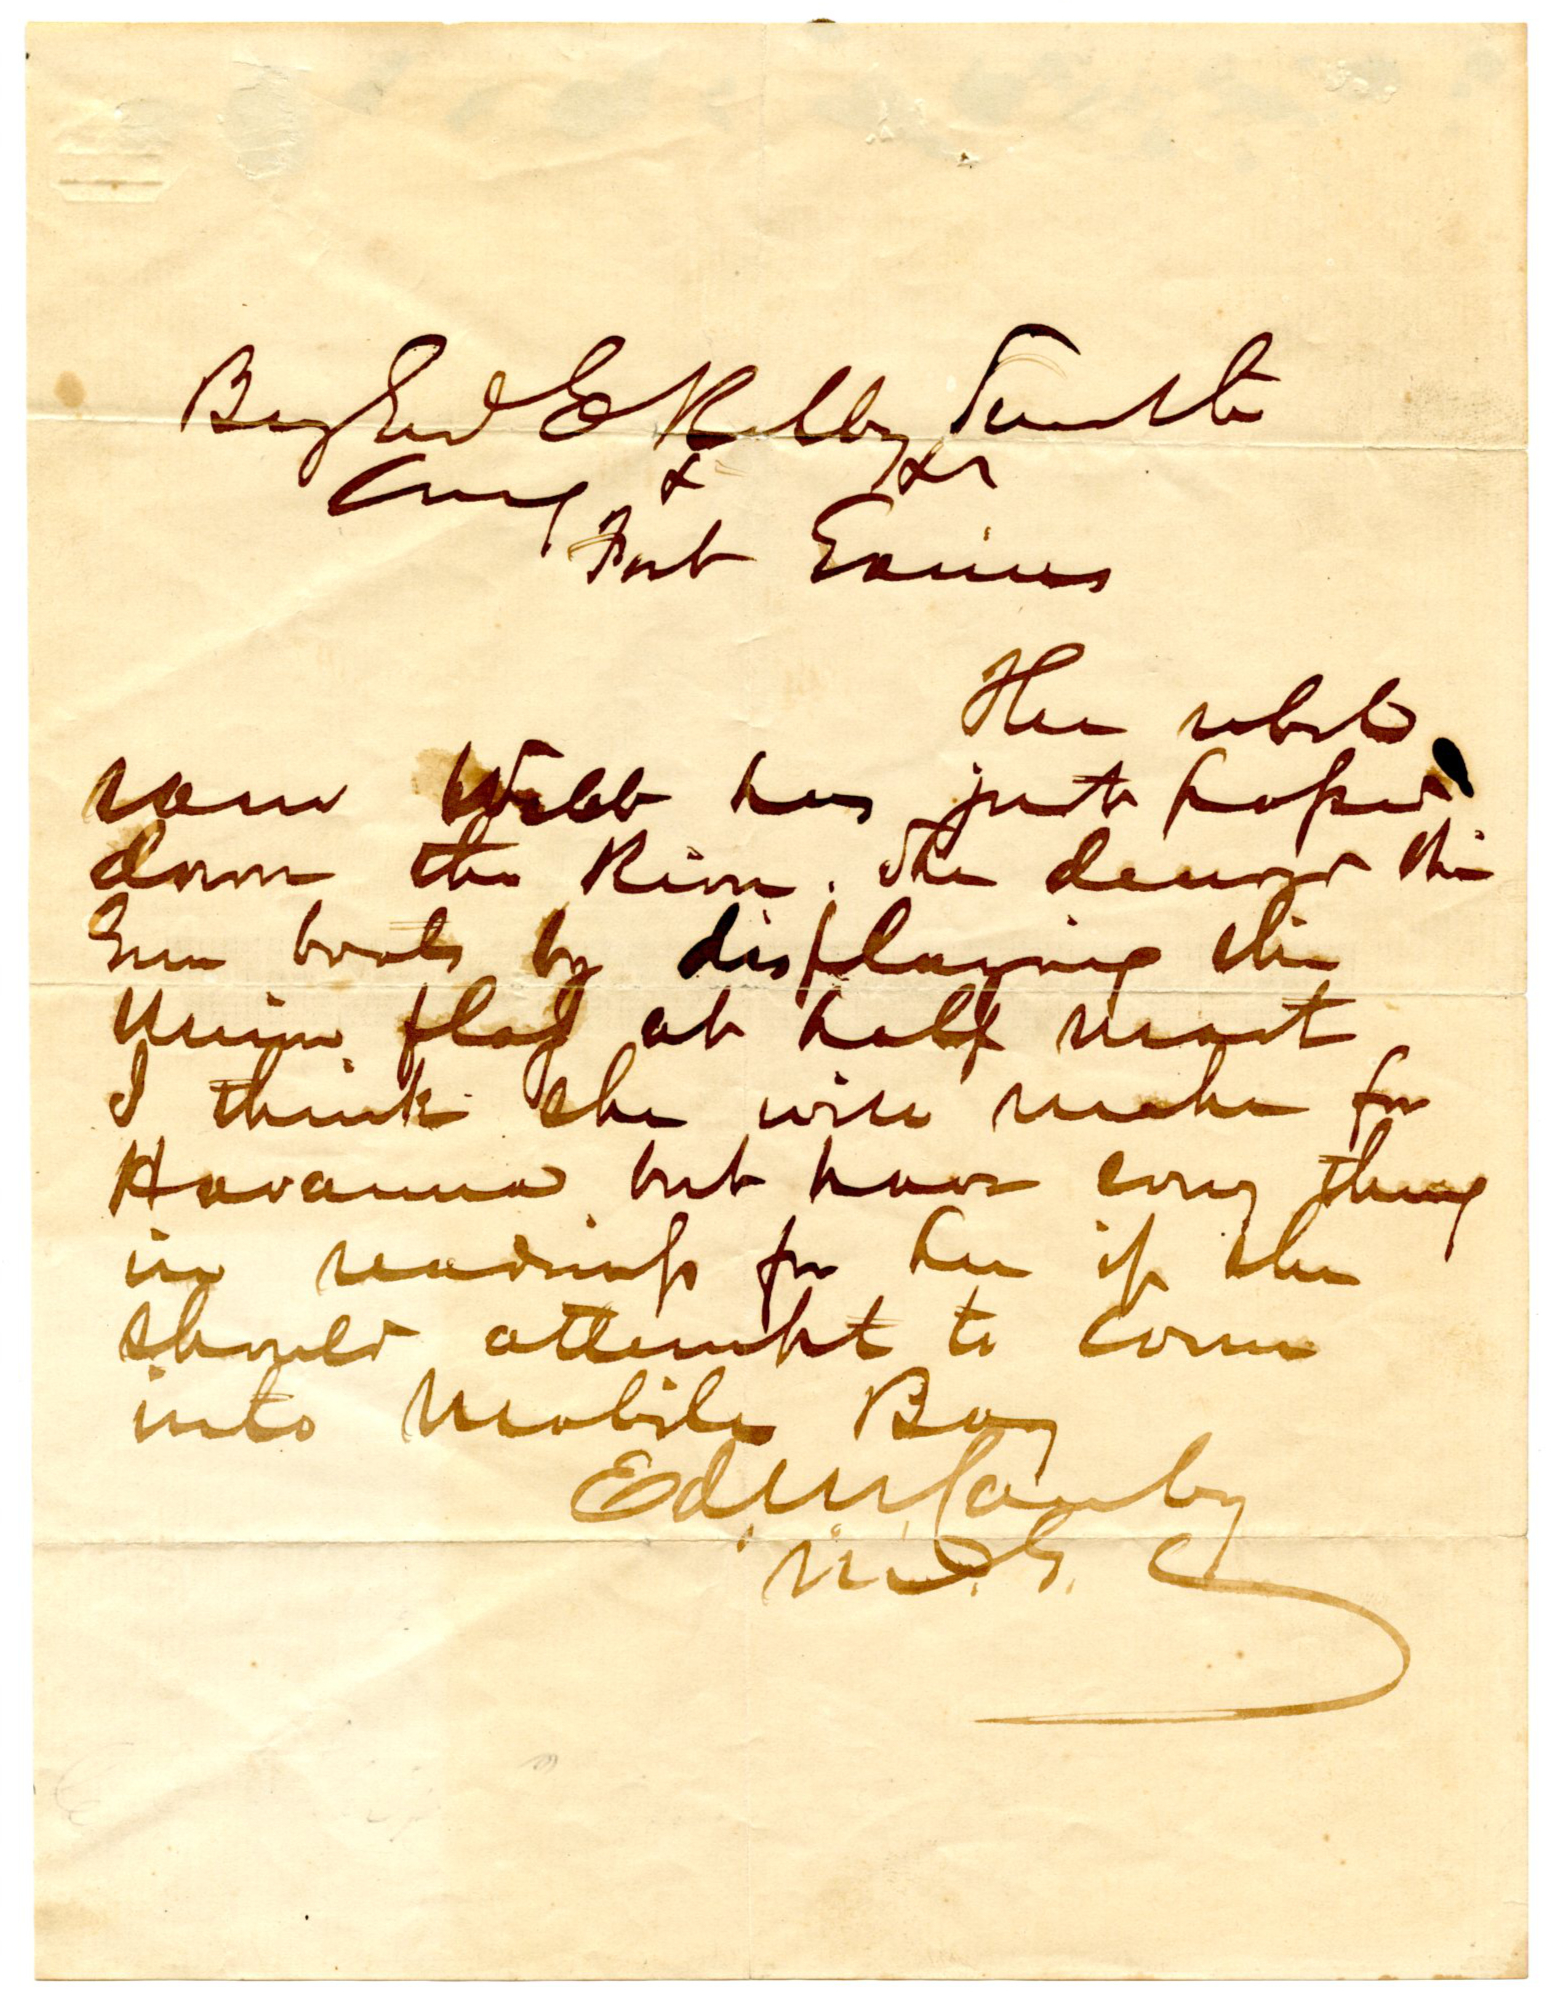 Brig Genl E Kilby Smith
Comg & &c
Fort Gaines
The rebel
ram Webb has just passed
down the River. She deceived the
Gun boats by displaying the
Union flag at half mast
I think she will make for
Havanna but have every thing
in readiness for her if she
should attempt to come
into Mobile Bay
Ed R S Canby
M. G.